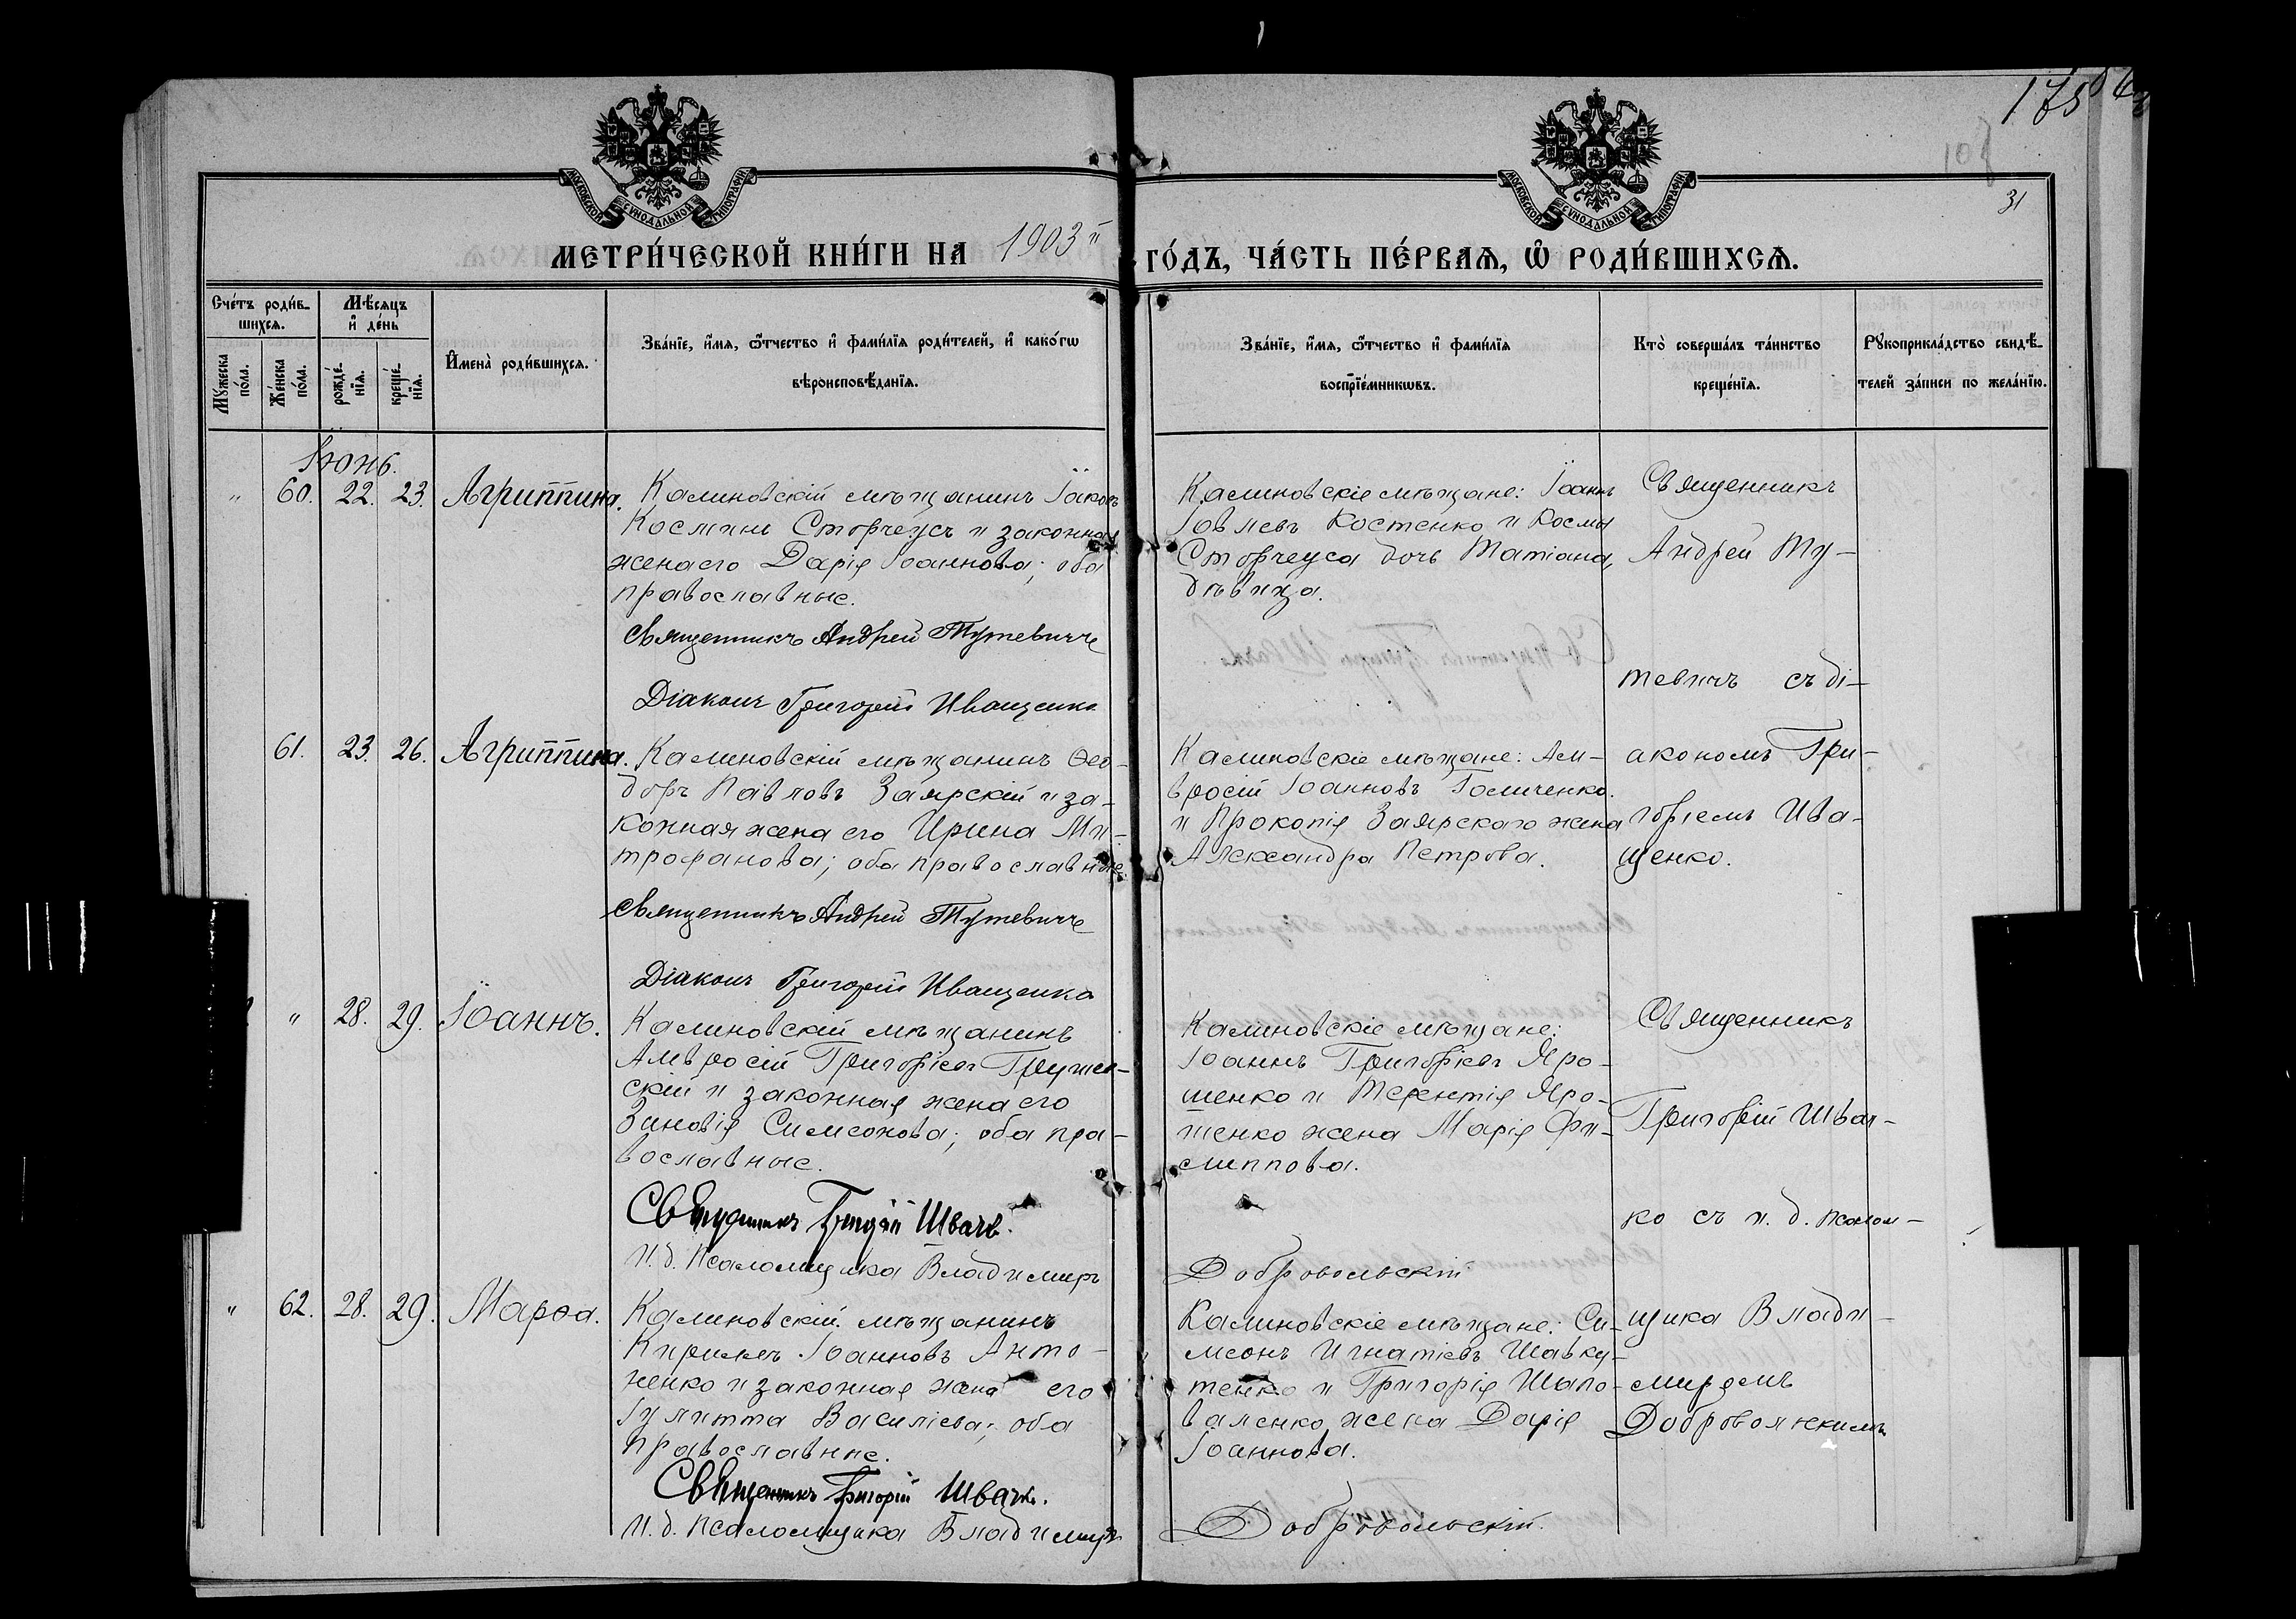 175
31
МОСКОВСКОЙ СѴНОДАЛЬНОЙ ТИПОГРАФІИ
МОСКОВСКОЙ СѴНОДАЛЬНОЙ ТИПОГРАФІИ
МЕТРИ́ЧЕСКОЙ КНИ́ГИ НА 1903й ГО́ДЪ, ЧА́СТЬ ПЕ́РВАѦ, Ѽ РОДИ́ВШИХСѦ.
Счётъ роди́в-
шихся.
Мѣ́сяцъ
и де́нь
Мꙋ́жеска по́ла.
Же́нска по́ла.
рожде́нїя.
креще́нїя.
И҆мена̀ роди́вшихся.
Зва́нїе, и҆́мя, ѻ҆́тчество и҆ фами́лїя роди́телей, и҆ како́гѡ
вѣроисповѣ́данїя.
Зва́нїе, и҆́мя, ѻ҆́тчество и҆ фами́лїя
воспрїе́мникѡвъ.
Кто̀ соверша́лъ та́инство
креще́нїя.
Рꙋкоприкла́дство свидѣ́-
телей за́писи по жела́нїю.
Іюнь.
" 60. 22. 23. Агриппина.
Калиновскій мѣщанинъ Іаковъ
Косминъ Сторчеусъ и законная
жена его Дарія Іоаннова; оба
православные.
Священникъ Андрей Тутевичъ
Діаконъ Григорій Иващенко
Калиновскіе мѣщане: Іоаннъ
Іовлевъ Костенко и Космы
Сторчеуса дочь Татіана,
дѣвица.
Священникъ
Андрей Ту-
тевичъ съ ді-
акономъ Гри-
горіемъ Ива-
щенко.
61. 23. 26. Агриппина.
Калиновскій мѣщанинъ Ѳео-
доръ Павловъ Заярскій и за-
конная жена его Ирина Ми-
трофанова; оба православные
Священникъ Андрей Тутевичъ
Діаконъ Григорій Иващенко
Калиновскіе мѣщане: Ам-
вросій Іоанновъ Голиченко
и Прокопія Заярскаго жена
Александра Петрова.
" 28. 29. Іоаннъ.
Калиновскій мѣщанинъ
Амвросій Григоріевъ
скій и законная жена его
Зиновія Симеонова; оба пра-
вославные.
Священникъ Григорій Швачко.
И. д. Псаломщика Владимиръ Добровольскій
Калиновскіе мѣщане:
Іоаннъ Григоріевъ Яро-
шенко и Терентія Яро-
шенко жена Марія Фи-
липпова.
Священникъ
Григорій Швач-
ко съ и. д. псалом-
щика Влади-
миромъ
Добровольскимъ
" 62. 28. 29. Марѳа.
Калиновскій мѣщанинъ
Кириллъ Іоанновъ Анто-
ненко и законная жена его
Іулитта Василіева; оба
православные.
Священникъ Григорій Швачко.
И. д. Псаломщика Владимиръ Добровольскій.
Калиновскіе мѣщане: Си-
меонъ Игнатіевъ Шавку-
тенко и Григорія Шапо-
валенко жена Дарія
Іоаннова.